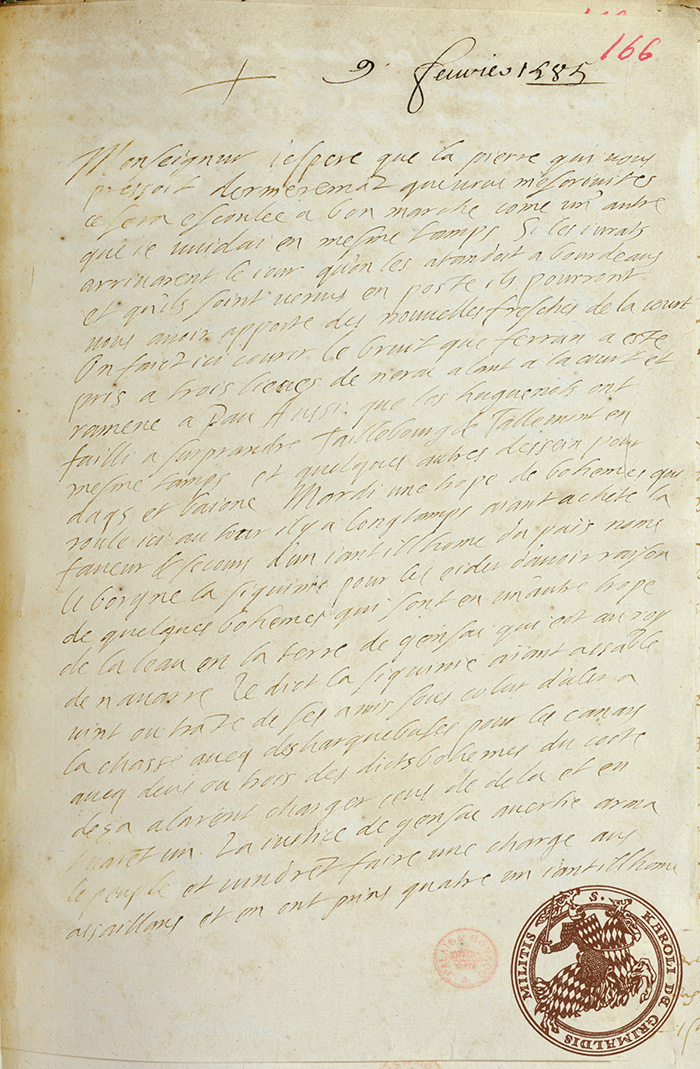 166
9 feurier 1585
Monseignur iespere que la pierre qui vous
pressoit dernierement que vous
ce sera escoulee a bon marche come un' autre
que ie vuidai en mesme tamps Si les iurats
arriuarent le iour qu'on les atandoit a bourdeaus
et qu'ils soint venus en poste ils pourront
vous auoir apporte des nouuelles fresches de la court
On faict ici courir le bruit que ferran a este
pris a trois lieues de nerac alant a la court et
ramene a Pau Aussi que les huguenots ont
failli a surprandre Taillebourg & Tallemont en
mesme tamps et quelques autres dessein pour
daqs et baione Mardi une trope de bohemes qui
roule ici au tour il y a longtamps aiant achete la
faueur & secours d'un iantilhome du païs nome
le borgne la siguinie pour les eider d'auoir raison
de quelques bohemes qui sont en un'autre trope
de la l'eau en la terre de gensac qui est au roy
de nauarre Le dict la siguinie aiant assamble
uint ou trante de ses amis sous colur d'aler a
la chasse aueq des harquebuses pour les canars
aueq deus ou trois des dicts bohemes du coste
deça alarent charger ceus de dela et en
tuarēt un La iustice de gensac auertie arma
le peuple et vindrēt faire une charge aus
assaillans et en ont prins quatre un iantilhome
S. KAROLI DE GRIMALDIS MILITIS